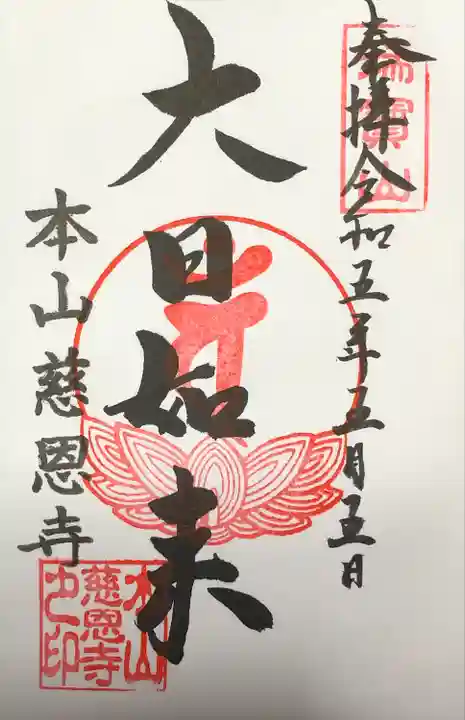 奉拝 令和五年五月五日
瑞寳山
大日如来
本山慈恩寺
本山
慈恩寺
之印